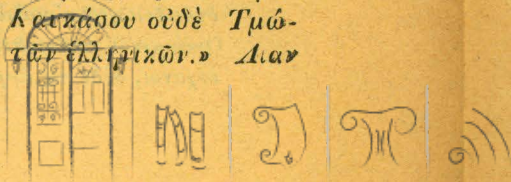 Καυκάσου οὐδὲ Τμώ-
τὰν ἑλληνικῶν.» Λιαν